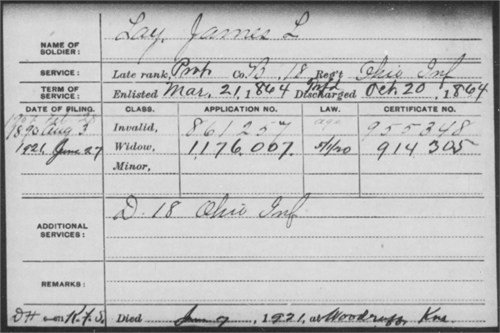 NAME OF SOLDIER: Lay, James L
SERVICE: Late rank, Prvt Co. B, 18 Reg't Ohio Inf
TERM OF SERVICE: Enlisted Mar. 21, 1864 Discharged Oct. 20, 1864
DATE OF FILING. CLASS. APPLICATION NO. LAW. CERTIFICATE NO.
1890 Aug 3 Invalid, 861257 955348
1921, June 27 Widow, 1176,007 5/1/20 914305
Minor,
ADDITIONAL SERVICES: D. 18 Ohio Inf
REMARKS:
Died June 9, 1921, at Woodruff, Kns.